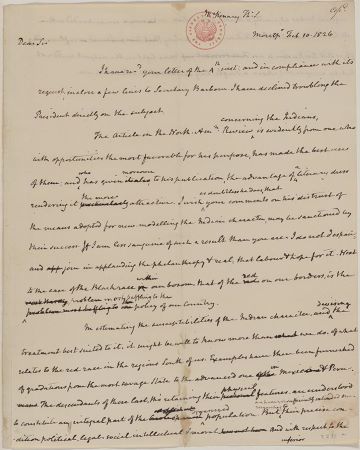 McKenney Th: L.
Montp^r Feb 10. 1826
Dear Sir
I have rec^d your letter of the 4^th inst: and in compliance with its
request, inclose a few lines to Secretary Barbour. I have declined troubling the
President directly on the subject.
concerning the Indians,
The Article in the North Am^n Review is evidently from one who
with opportunities the most favorable for his purpose, has made the best use
of them; and has given to his publication the advantage of a literary dress
who moreover
rendering it attractive. I wish your comments on his distrust of
the more
the means adopted for new modelling the Indian character may be sanctioned by
their success. If I am less sanguine of such a result than you are, I do not despair,
and join in applauding the philanthropy & zeal, that labour & hope for it. Next
to the case of the Black race within our bosom, that of the red on our borders, is the
problem most baffling to the policy of our Country.
In estimating the susceptibilities of the Indian character, and the
devising
treatment best suited to it, it might be well to know more than we do, of what
relates to the red race in the regions South of us. Examples have there been furnished
of gradations from the most savage state to the advanced one of Mexico & Peru.
The descendants of these last, tho' retaining their physical features, are understood
to constitute an integral part of the population. But their precise con-
dition political, legal, social, intellectual & moral And with respect to the
inferior